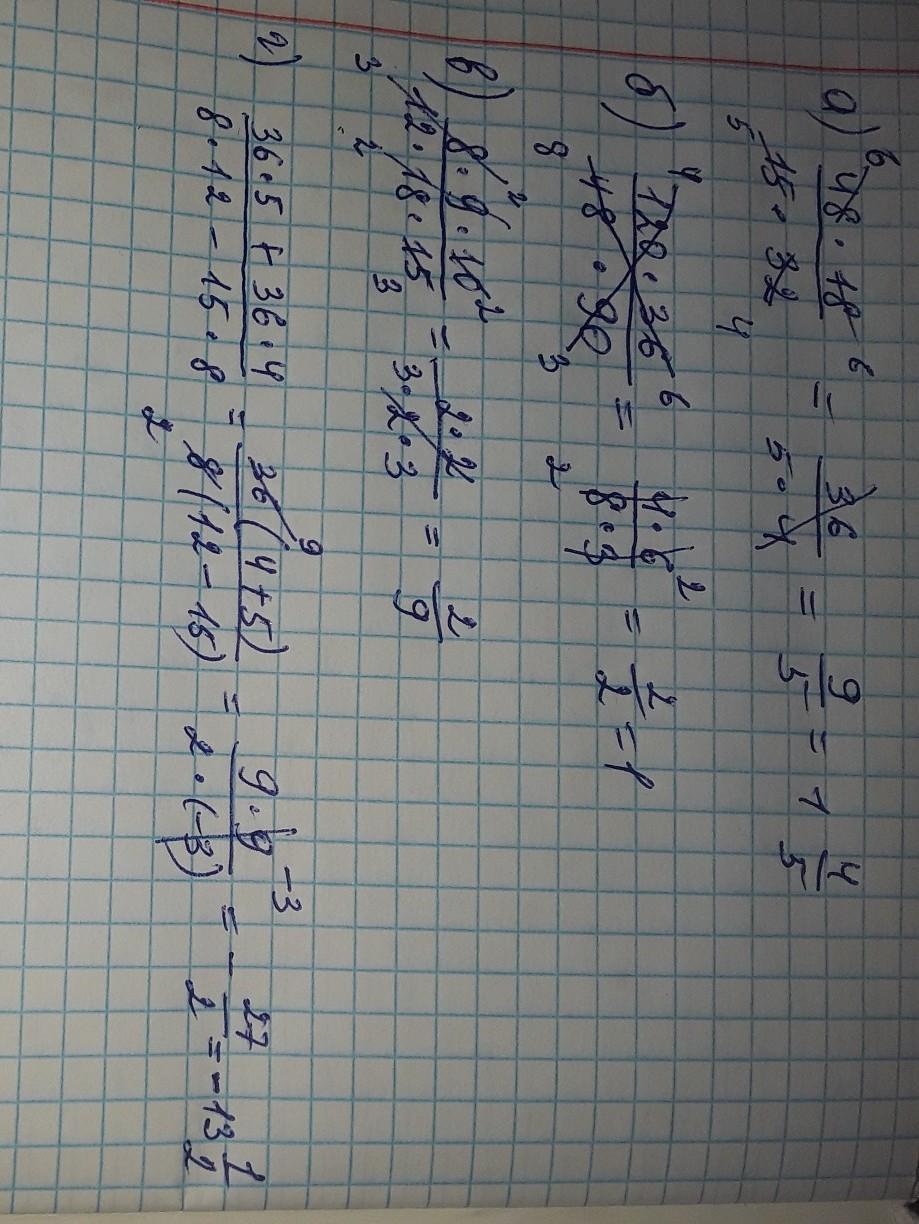 а) 48·18 / 15·32 = 36 / 5·4 = 9/5 = 1 4/5
б) 120·36 / 48·90 = 4·6 / 8·3 = 2/2 = 1
в) 8·9·10 / 12·18·15 = 2·2 / 3·2·3 = 2/9
г) 36·5 + 36·4 / 8·12 - 15·8 = 36(4+5) / 8(12-15) = 9·9 / 2·(-3) = - 27/2 = -13 1/2